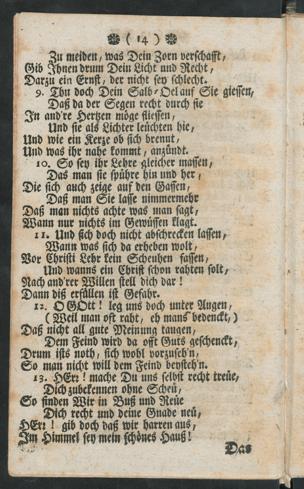 ( 14 )
Zu meiden, was Dein Zorn verschafft,
Gib Ihnen drum Dein Licht und Recht,
Darzu ein Ernst, der nicht sey schlecht.
9. Thu doch Dein Salb-Oel auf Sie giessen,
Daß da der Segen recht durch sie
In and're Hertzen möge fliessen,
Und sie als Lichter leüchten hie,
Und wie ein Kertze ob sich brennt,
Und was ihr nahe kommt, anzündt.
10. So sey ihr Lehre gleicher massen,
Das man sie spühre hin und her,
Die sich auch zeige auf den Gassen,
Daß man Sie lasse nimmermehr
Daß man nichts achte was man sagt,
Wann nur nichts im Gewüssen klagt.
11. Und sich doch nicht abschrecken lassen,
Wann was sich da erheben wolt,
Vor Christi Lehr kein Scheuhen fassen,
Und wanns ein Christ schon rahten solt,
Nach and'rer Willen stell dich dar!
Dann diß erfüllen ist Gefahr.
12. O GOtt! leg uns doch unter Augen,
(Weil man oft raht, eh mans bedenckt,)
Daß nicht all gute Meinung taugen,
Dem Feind wird da offt Guts geschenckt,
Drum ists noth, sich wohl vorzuseh'n,
So man nicht will dem Feind beysteh'n.
13. HErr! mache Du uns selbst recht treüe,
Dich zubekennen ohne Scheü,
So finden Wir in Buß und Reüe
Dich recht und deine Gnade neü,
HErr! gib doch daß wir harren aus,
Im Himmel sey mein schönes Hauß!
Das